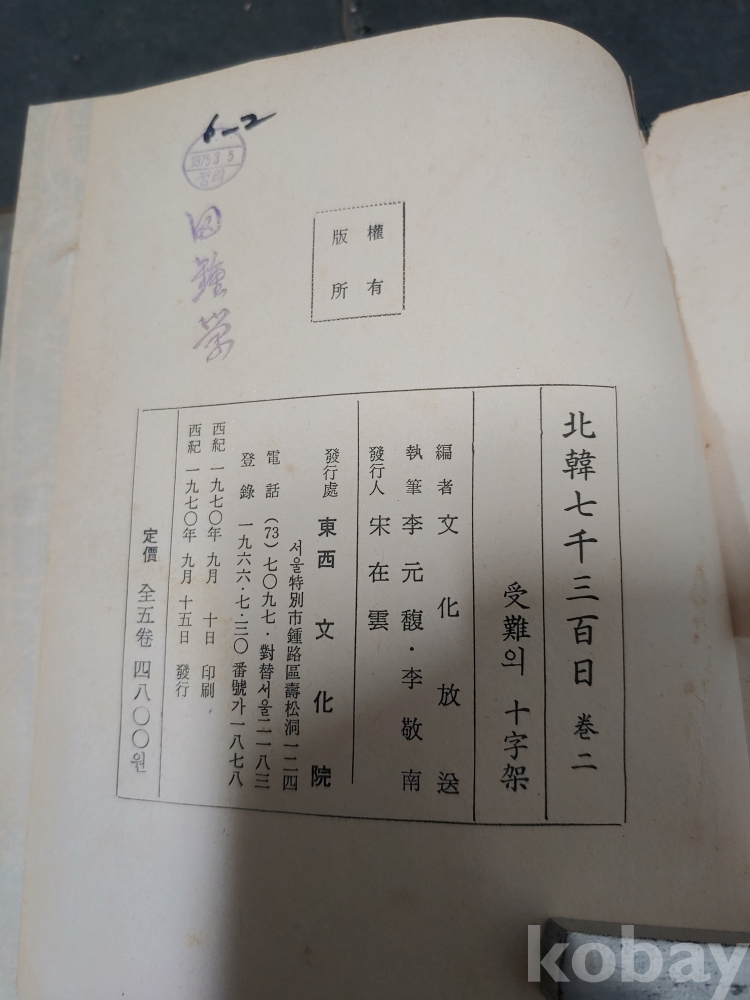 6-2
1975 3 5
정리
田鍾学
版權
所有
北韓七千三百日 卷二
受難의 十字架
編者 文化放送
執筆 李元馥·李敬南
發行人 宋在雲
發行處 東西文化院
서울特別市鍾路區壽松洞一二四
電話 (73)七〇九七·對替서울二一八三
登錄 一九六六·七·三〇 番號가一八七八
西紀 一九七〇年 九月 十日 印刷
西紀 一九七〇年 九月 十五日 發行
定價 全五卷 四八〇〇원
kobay